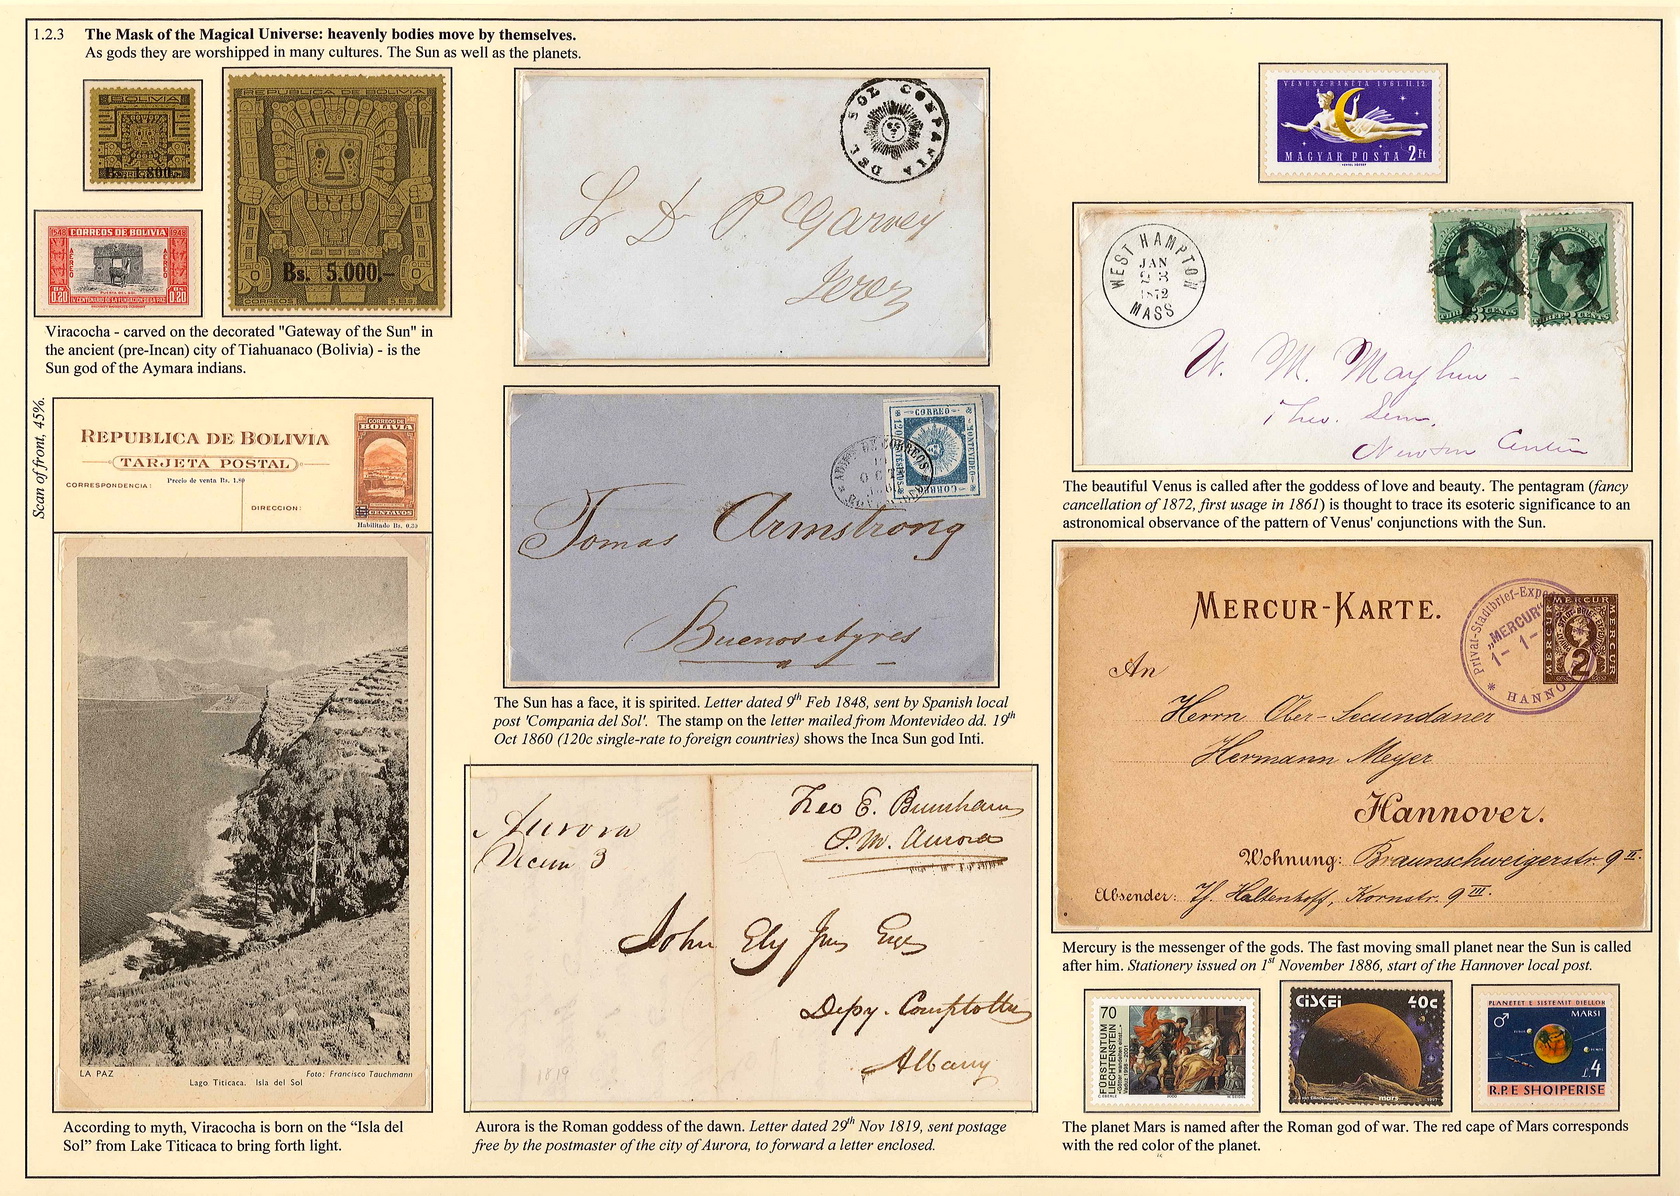 1.2.3 The Mask of the Magical Universe: heavenly bodies move by themselves.
As gods they are worshipped in many cultures. The Sun as well as the planets.
BOLIVIA
REPUBLICA DE BOLIVIA
Bs. 5.000.-
CORREOS 5 BS.
1548 CORREOS DE BOLIVIA 1948
AEREO AEREO
PUERTA DEL SOL
Bs 0.20 IV CENTENARIO DE LA FUNDACION DE LA PAZ Bs 0.20
Viracocha - carved on the decorated "Gateway of the Sun" in
the ancient (pre-Incan) city of Tiahuanaco (Bolivia) - is the
Sun god of the Aymara indians.
Scan of front, 45%.
REPUBLICA DE BOLIVIA
TARJETA POSTAL
Precio de venta Bs. 1.80
CORRESPONDENCIA:
DIRECCION:
CORREOS DE
BOLIVIA
CENTAVOS
Habilitado Bs. 0.30
LA PAZ
Foto: Francisco Tauchmann
Lago Titicaca. Isla del Sol
According to myth, Viracocha is born on the “Isla del
Sol” from Lake Titicaca to bring forth light.
COMPANIA DEL SOL
Sr D P Garvey
Jerez
CORREO
MONTEVIDEO
120 CENTESIMOS
CORREO
ADMON DE CORREOS
OCT
Tomas Armstrong
Buenos Ayres
The Sun has a face, it is spirited. Letter dated 9th Feb 1848, sent by Spanish local
post 'Compania del Sol'. The stamp on the letter mailed from Montevideo dd. 19th
Oct 1860 (120c single-rate to foreign countries) shows the Inca Sun god Inti.
Aurora
3
E. Burnham
P.M. Aurora
John Ely Jun Esqr
Depy. Comptroller
Albany
1819
Aurora is the Roman goddess of the dawn. Letter dated 29th Nov 1819, sent postage
free by the postmaster of the city of Aurora, to forward a letter enclosed.
VÉNUSZ-RAKÉTA 1961.II.12.
MAGYAR POSTA 2 Ft
WEST HAMPTON
JAN
23
1872
MASS
THREE CENTS
THREE CENTS
W. M. Mayhew
Theo. Sem.
Newton Centre
The beautiful Venus is called after the goddess of love and beauty. The pentagram (fancy
cancellation of 1872, first usage in 1861) is thought to trace its esoteric significance to an
astronomical observance of the pattern of Venus' conjunctions with the Sun.
MERCUR-KARTE.
Privat-Stadtbrief-Exped
"MERCUR"
1-1-
* HANNO
MERCUR
MERCUR
MERCUR
2
An
Herrn Ober-Secundaner
Hermann Meyer
Hannover.
Wohnung: Braunschweigerstr. 9 II.
Absender: Th. Haltenhoff, Kornstr. 9 III.
Mercury is the messenger of the gods. The fast moving small planet near the Sun is called
after him. Stationery issued on 1st November 1886, start of the Hannover local post.
70
FÜRSTENTUM
LIECHTENSTEIN
CISKEI 40c
mars
PLANETET E SISTEMIT DIELLOR
MARSI
♂
L4
R.P.E SHQIPERISE
The planet Mars is named after the Roman god of war. The red cape of Mars corresponds
with the red color of the planet.